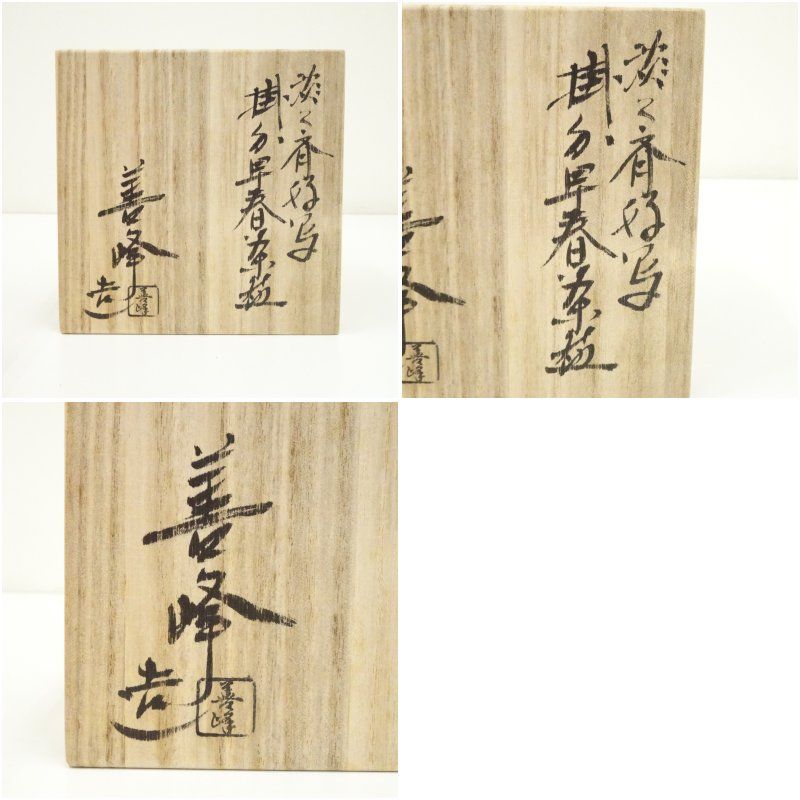 淡々斎好写
掛分早春茶碗
善峰
造
善峰
淡々斎好写
掛分早春茶碗
善峰
善峰
善峰
造
善峰